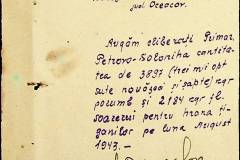 jud. Oceacov.
Rugăm eliberați Primar.
Petrovo-Soloniha cantita-
tea de 3897 (trei mii opt
sute nouăzeci și șapte) kgr
porumb și 2184 kgr fl.
soarelui pentru hrana ți-
ganilor pe luna August
1943.-